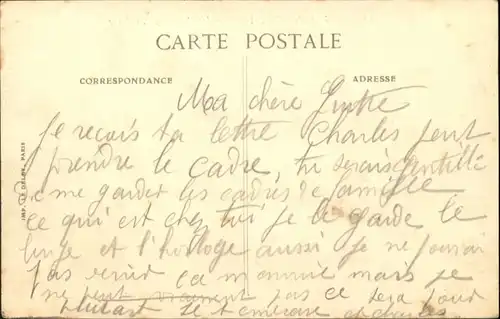 CARTE POSTALE
CORRESPONDANCE
ADRESSE
Ma chère
Je reçois ta lettre Charles peut
prendre le cadre, tu serais gentille
de me garder les cadres de famille
ce qui est chez toi je le garde le
linge et l'horloge aussi je ne pourrai
pas venir ça m'ennuie mais je
ne peut vraiment pas ce sera pour
plutard je t'embrasse et Charles
PARIS